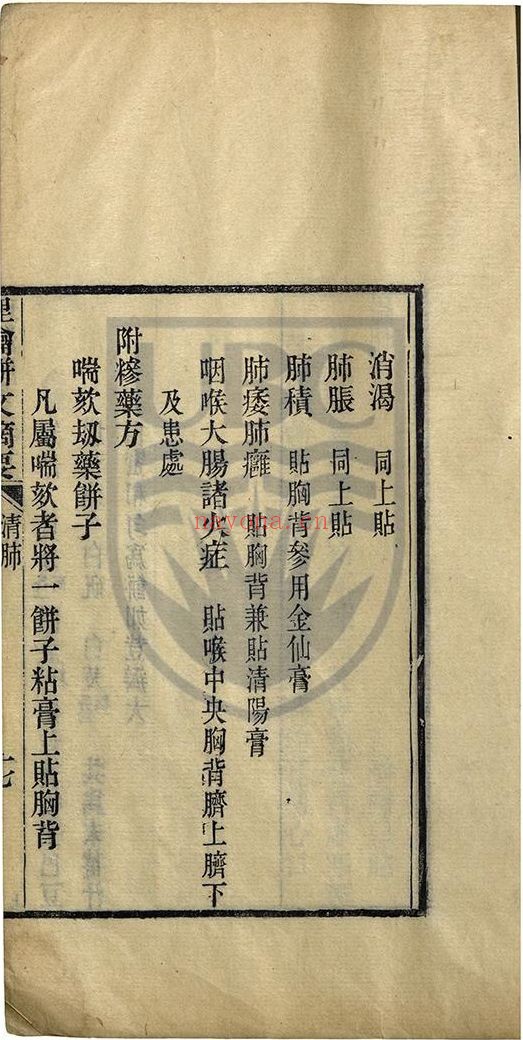 消渴　同上貼
肺脹　同上貼
肺積　貼胸背參用金仙膏
肺痿肺癰　貼胸背兼貼清陽膏
咽喉大腸諸火症　貼喉中央胸背臍上臍下
及患處
附糝藥方
喘欬刼藥餅子
凡屬喘欬者將一餅子粘膏上貼胸背
理瀹駢文摘要　清肺